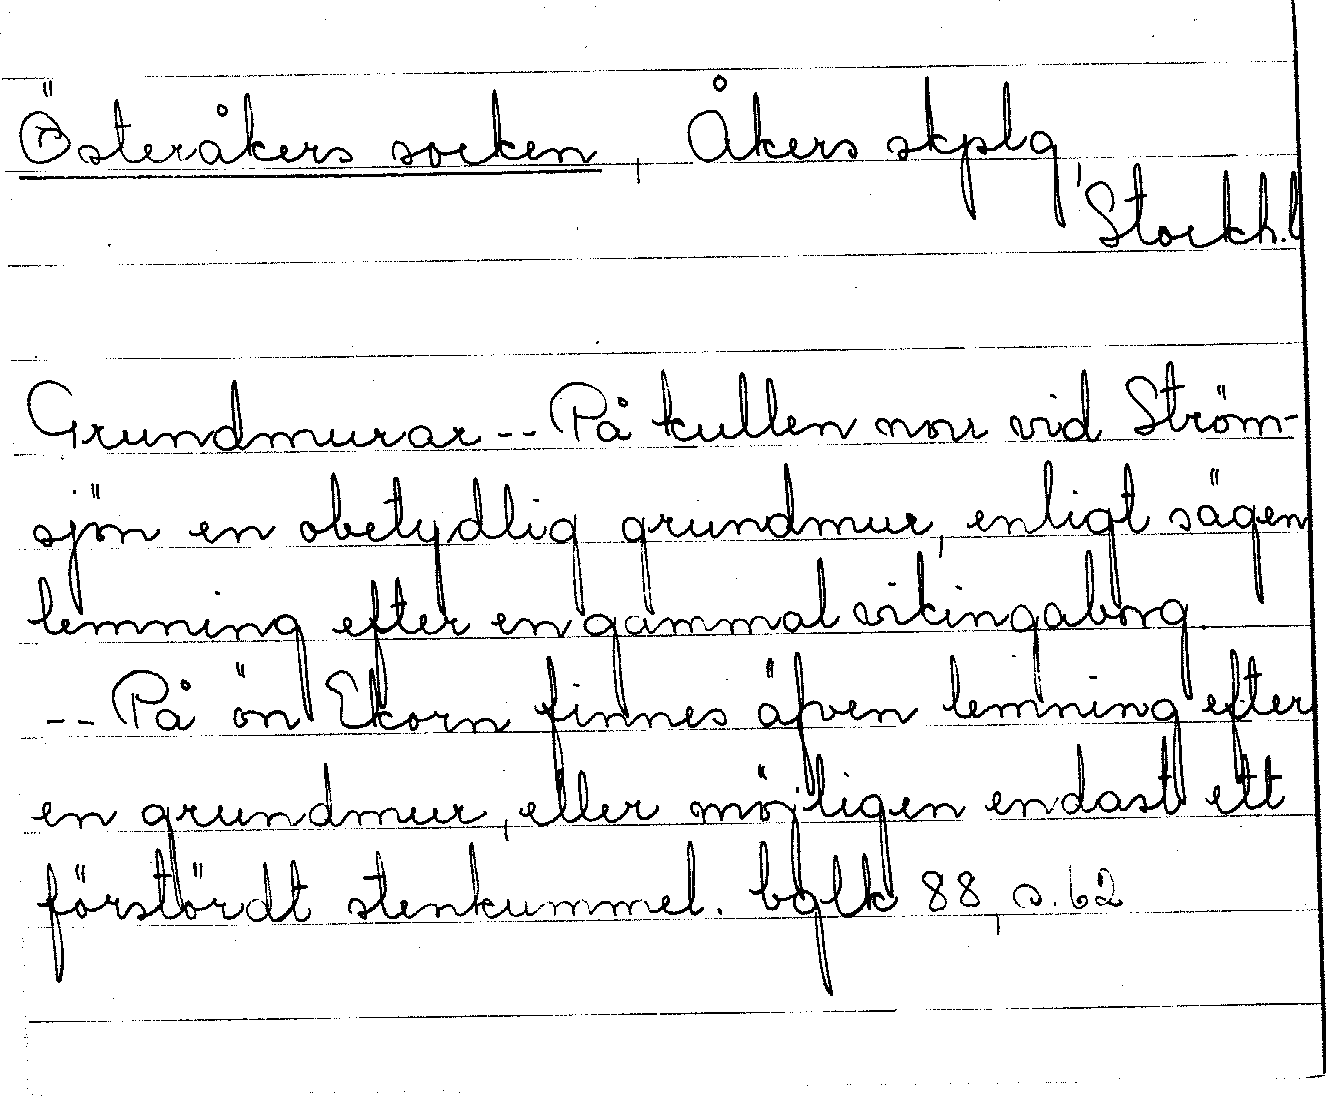 Österåkers socken, Åkers skplg,
Stockh.l
Grundmurar -- På kullen norr vid Ström-
sjön en obetydlig grundmur, enligt sägen
lemning efter en gammal vikingaborg.
-- På ön Ekorn finnes äfven lemning efter
en grundmur, eller möjligen endast ett
förstördt stenkummel. bglk 88, s. 62